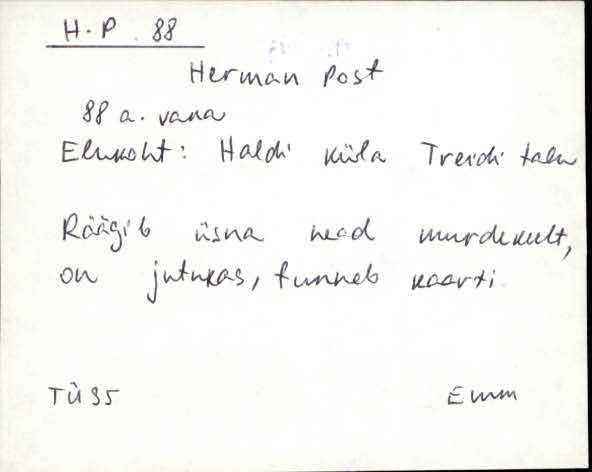 H.P. 88
Herman Post
88 a. vana
Elukoht: Haldi küla Treidi talu
Räägib üsna head murdekeelt,
on jutukas, tunneb kaarti.
TÜ 95
Emm